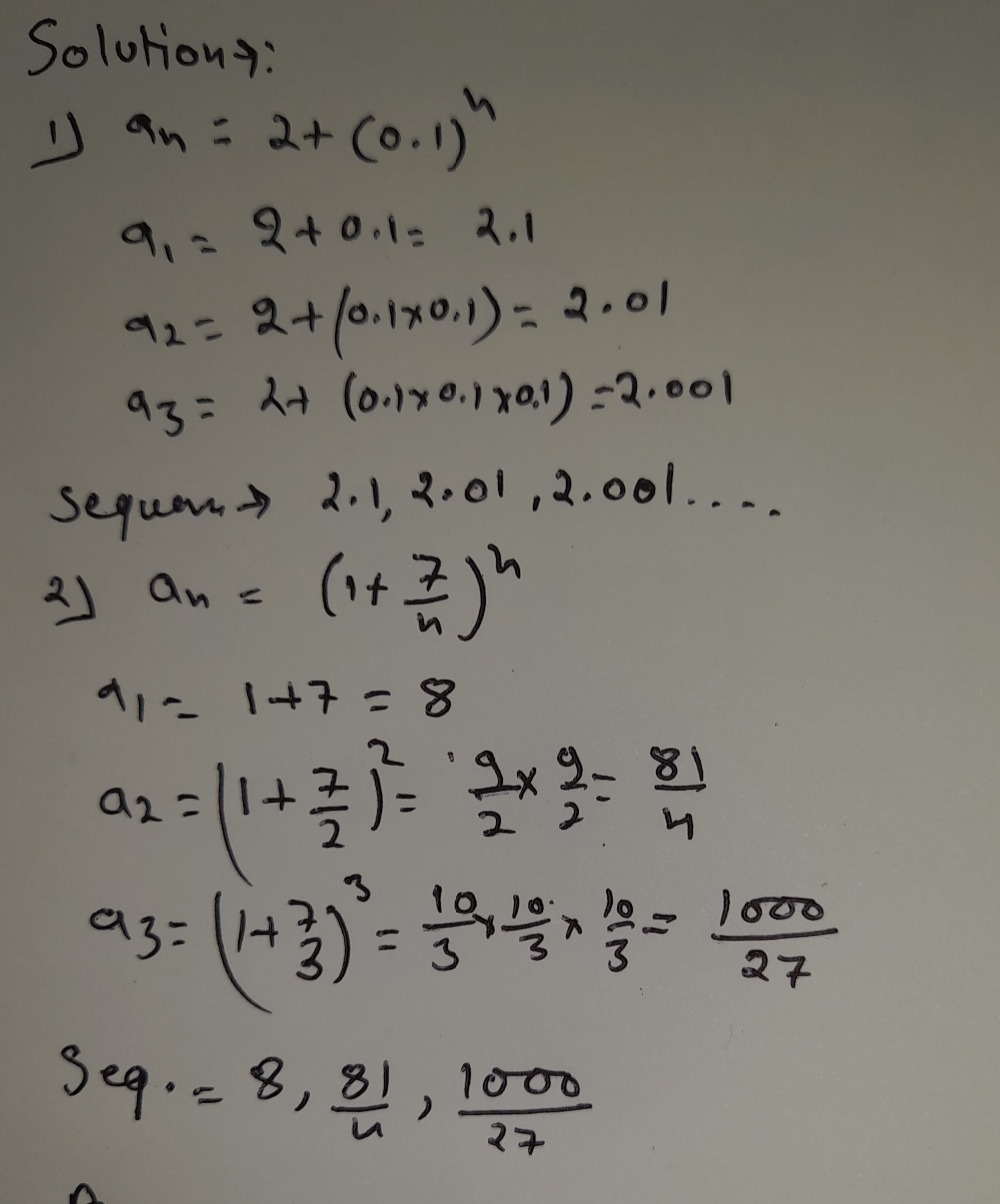 Solution→:
1) an = 2+(0.1)^n
a1 = 2+0.1= 2.1
a2 = 2+(0.1×0.1) = 2.01
a3 = 2+ (0.1×0.1×0.1) =2.001
→ 2.1, 2.01, 2.001.....
2) an = (1+ 7/n)^n
a1 = 1+7 = 8
a2 = (1+ 7/2)^2 = 9/2 × 9/2 = 81/4
a3 = (1+ 7/3)^3 = 10/3 × 10/3 × 10/3 = 1000/27
Seq. = 8, 81/4, 1000/27